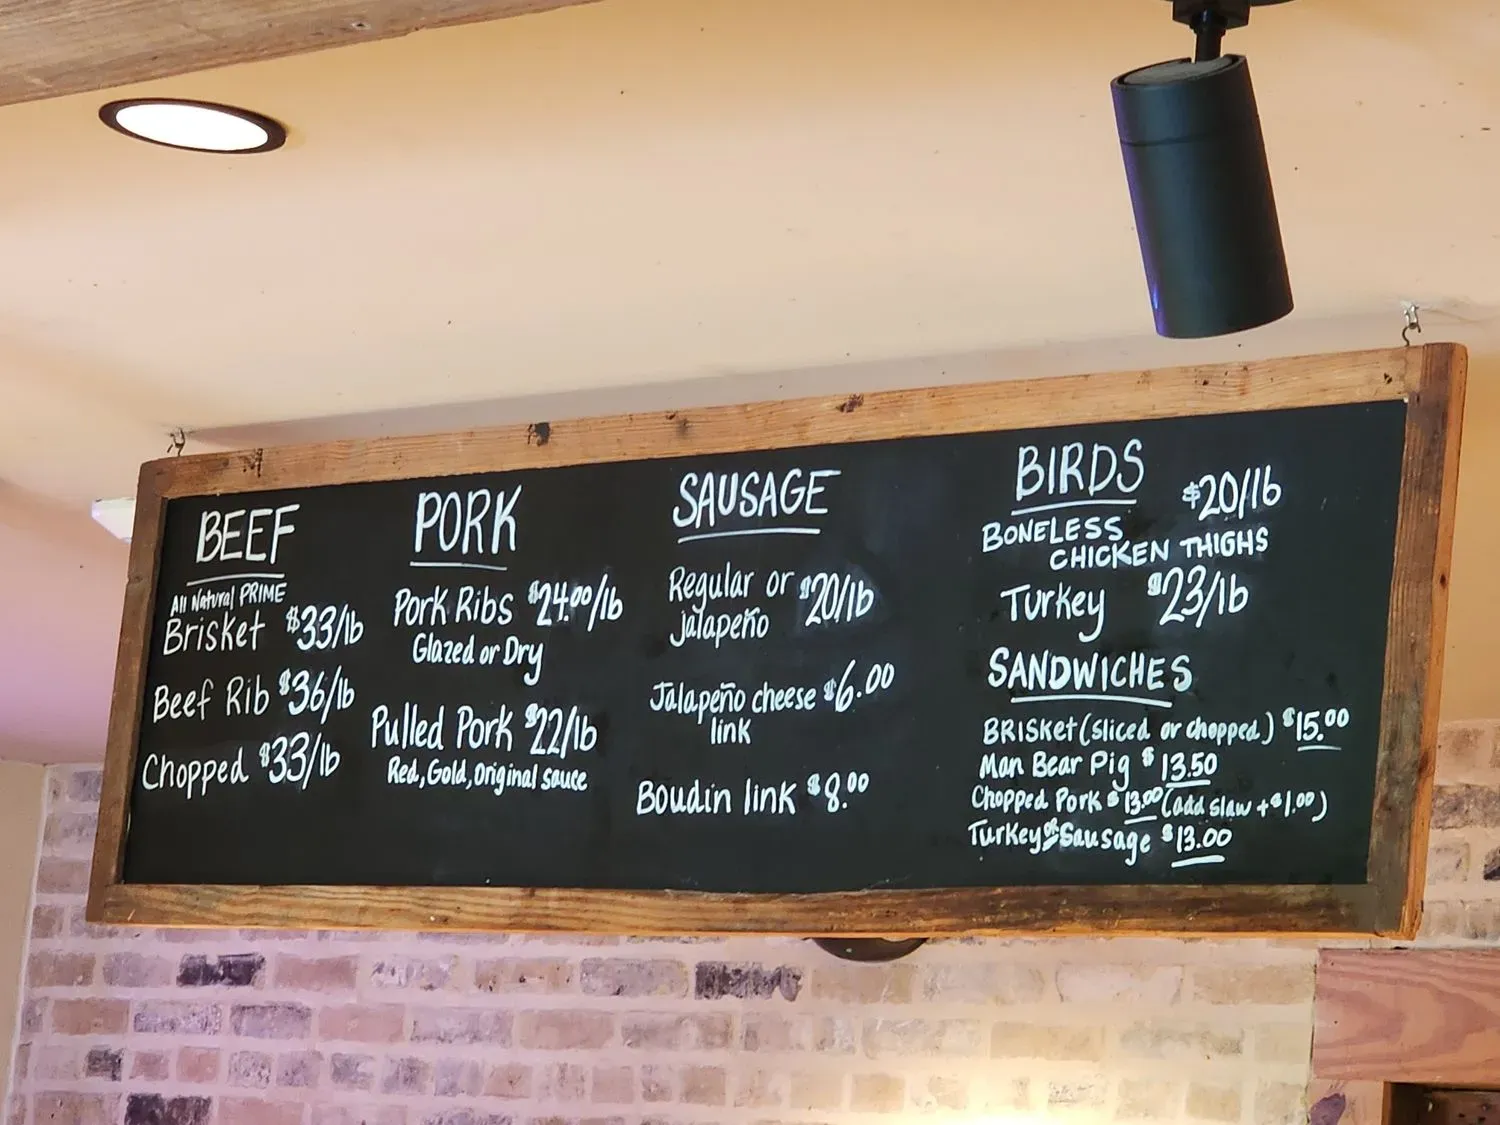 BEEF
All Natural PRIME
Brisket $33/lb
Beef Rib $36/lb
Chopped $33/lb
PORK
Pork Ribs $24.00/lb
Glazed or Dry
Pulled Pork $22/lb
Red, Gold, Original sauce
SAUSAGE
Regular or
jalapeño $20/lb
Jalapeño cheese $6.00
link
Boudin link $8.00
BIRDS
$20/lb
BONELESS
CHICKEN THIGHS
Turkey $23/lb
SANDWICHES
BRISKET (sliced or chopped) $15.00
Man Bear Pig $13.50
Chopped Pork $13.00 (add slaw +$1.00)
Turkey or Sausage $13.00